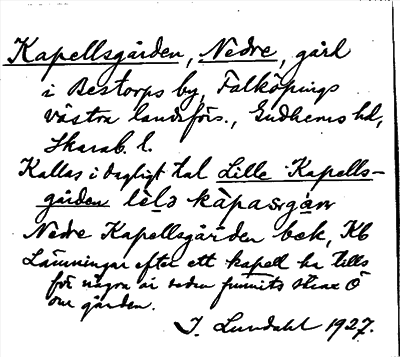 Kapellsgården, Nedre, gård
i Bestorps by, Falköpings
västra landsförs., Gudhems hd,
Skarab. l.
Kallas i dagligt tal Lille Kapells-
gården lìlə kàpasgán
Nedre Kapellsgården bok, Kb
Lämningar efter ett kapell ha tills
för några år sedan funnits strax Ö
om gården.
J. Lundahl 1927.